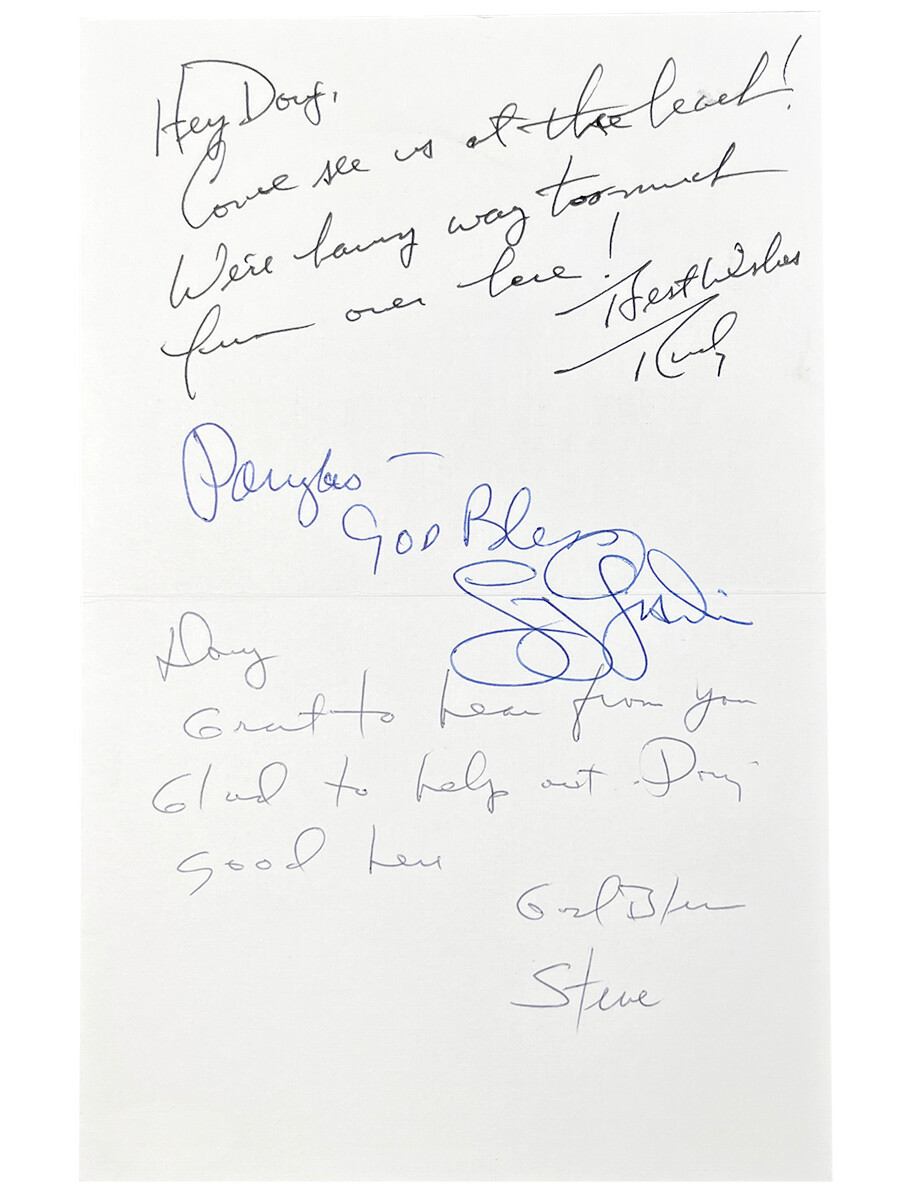 Hey Doug,
Come see us at the beach!
We're having way too much
fun over here!
Best Wishes
Rudy
Douglas —
GOD Bless
Doug
Great to hear from you
Glad to help out. Doing
good here
God Bless
Steve